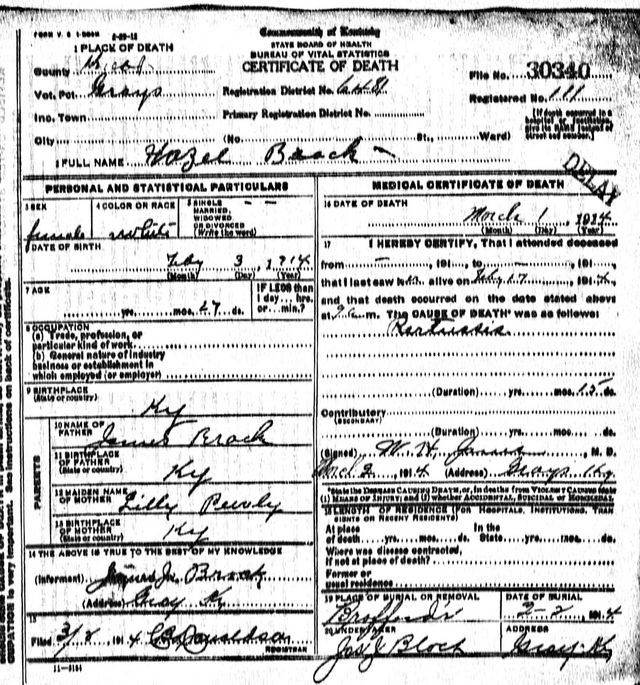 FORM V. S. 1-
Commonwealth of Kentucky
STATE BOARD OF HEALTH
BUREAU OF VITAL STATISTICS
CERTIFICATE OF DEATH
1 PLACE OF DEATH
County
Vot. Pct. Grays
Inc. Town
City
Registration District No.
Primary Registration District No.
(No. St., Ward)
File No. 30340
Registered No. 111
[If death occurred in a hospital or institution, give its NAME instead of street and number.]
2 FULL NAME Hazel Brock
DELAY
PERSONAL AND STATISTICAL PARTICULARS
3 SEX female
4 COLOR OR RACE white
5 SINGLE MARRIED, WIDOWED OR DIVORCED (Write the word)
6 DATE OF BIRTH
Feby 3, 1914
(Month) (Day) (Year)
7 AGE
yrs. mos. 27 ds.
IF LESS than 1 day... hrs. or... min.?
8 OCCUPATION
(a) Trade, profession, or particular kind of work
(b) General nature of industry business or establishment in which employed (or employer)
9 BIRTHPLACE (State or country) Ky
PARENTS
10 NAME OF FATHER James Brock
11 BIRTHPLACE OF FATHER (State or country) Ky
12 MAIDEN NAME OF MOTHER Lilly
13 BIRTHPLACE OF MOTHER (State or country) Ky
14 THE ABOVE IS TRUE TO THE BEST OF MY KNOWLEDGE
(Informant) Brock
(Address) Gray Ky
15
Filed 3/2 1914 Donaldson
REGISTRAR
11-3184
MEDICAL CERTIFICATE OF DEATH
16 DATE OF DEATH
March 1, 1914
(Month) (Day) (Year)
17 I HEREBY CERTIFY, That I attended deceased
from 191 , to 191 ,
that I last saw alive on Feby 17, 1914,
and that death occurred on the date stated above
at m. The CAUSE OF DEATH* was as follows:
Pertussis
(Duration) yrs. mos. 15 ds.
Contributory
(SECONDARY)
(Duration) yrs. mos. ds.
(Signed) W. H. M. D.
March 2, 1914 (Address) Grays Ky.
*State the DISEASE CAUSING DEATH, or, in deaths from VIOLENT CAUSES state (1) MEANS OF INJURY; and (2) whether ACCIDENTAL, SUICIDAL or HOMICIDAL.
18 LENGTH OF RESIDENCE (FOR HOSPITALS, INSTITUTIONS, TRANSIENTS OR RECENT RESIDENTS)
At place of death yrs. mos. ds. In the State yrs. mos. ds.
Where was disease contracted, if not at place of death?
Former or usual residence
19 PLACE OF BURIAL OR REMOVAL
DATE OF BURIAL
3-2, 1914
20 UNDERTAKER
ADDRESS
Gray Ky